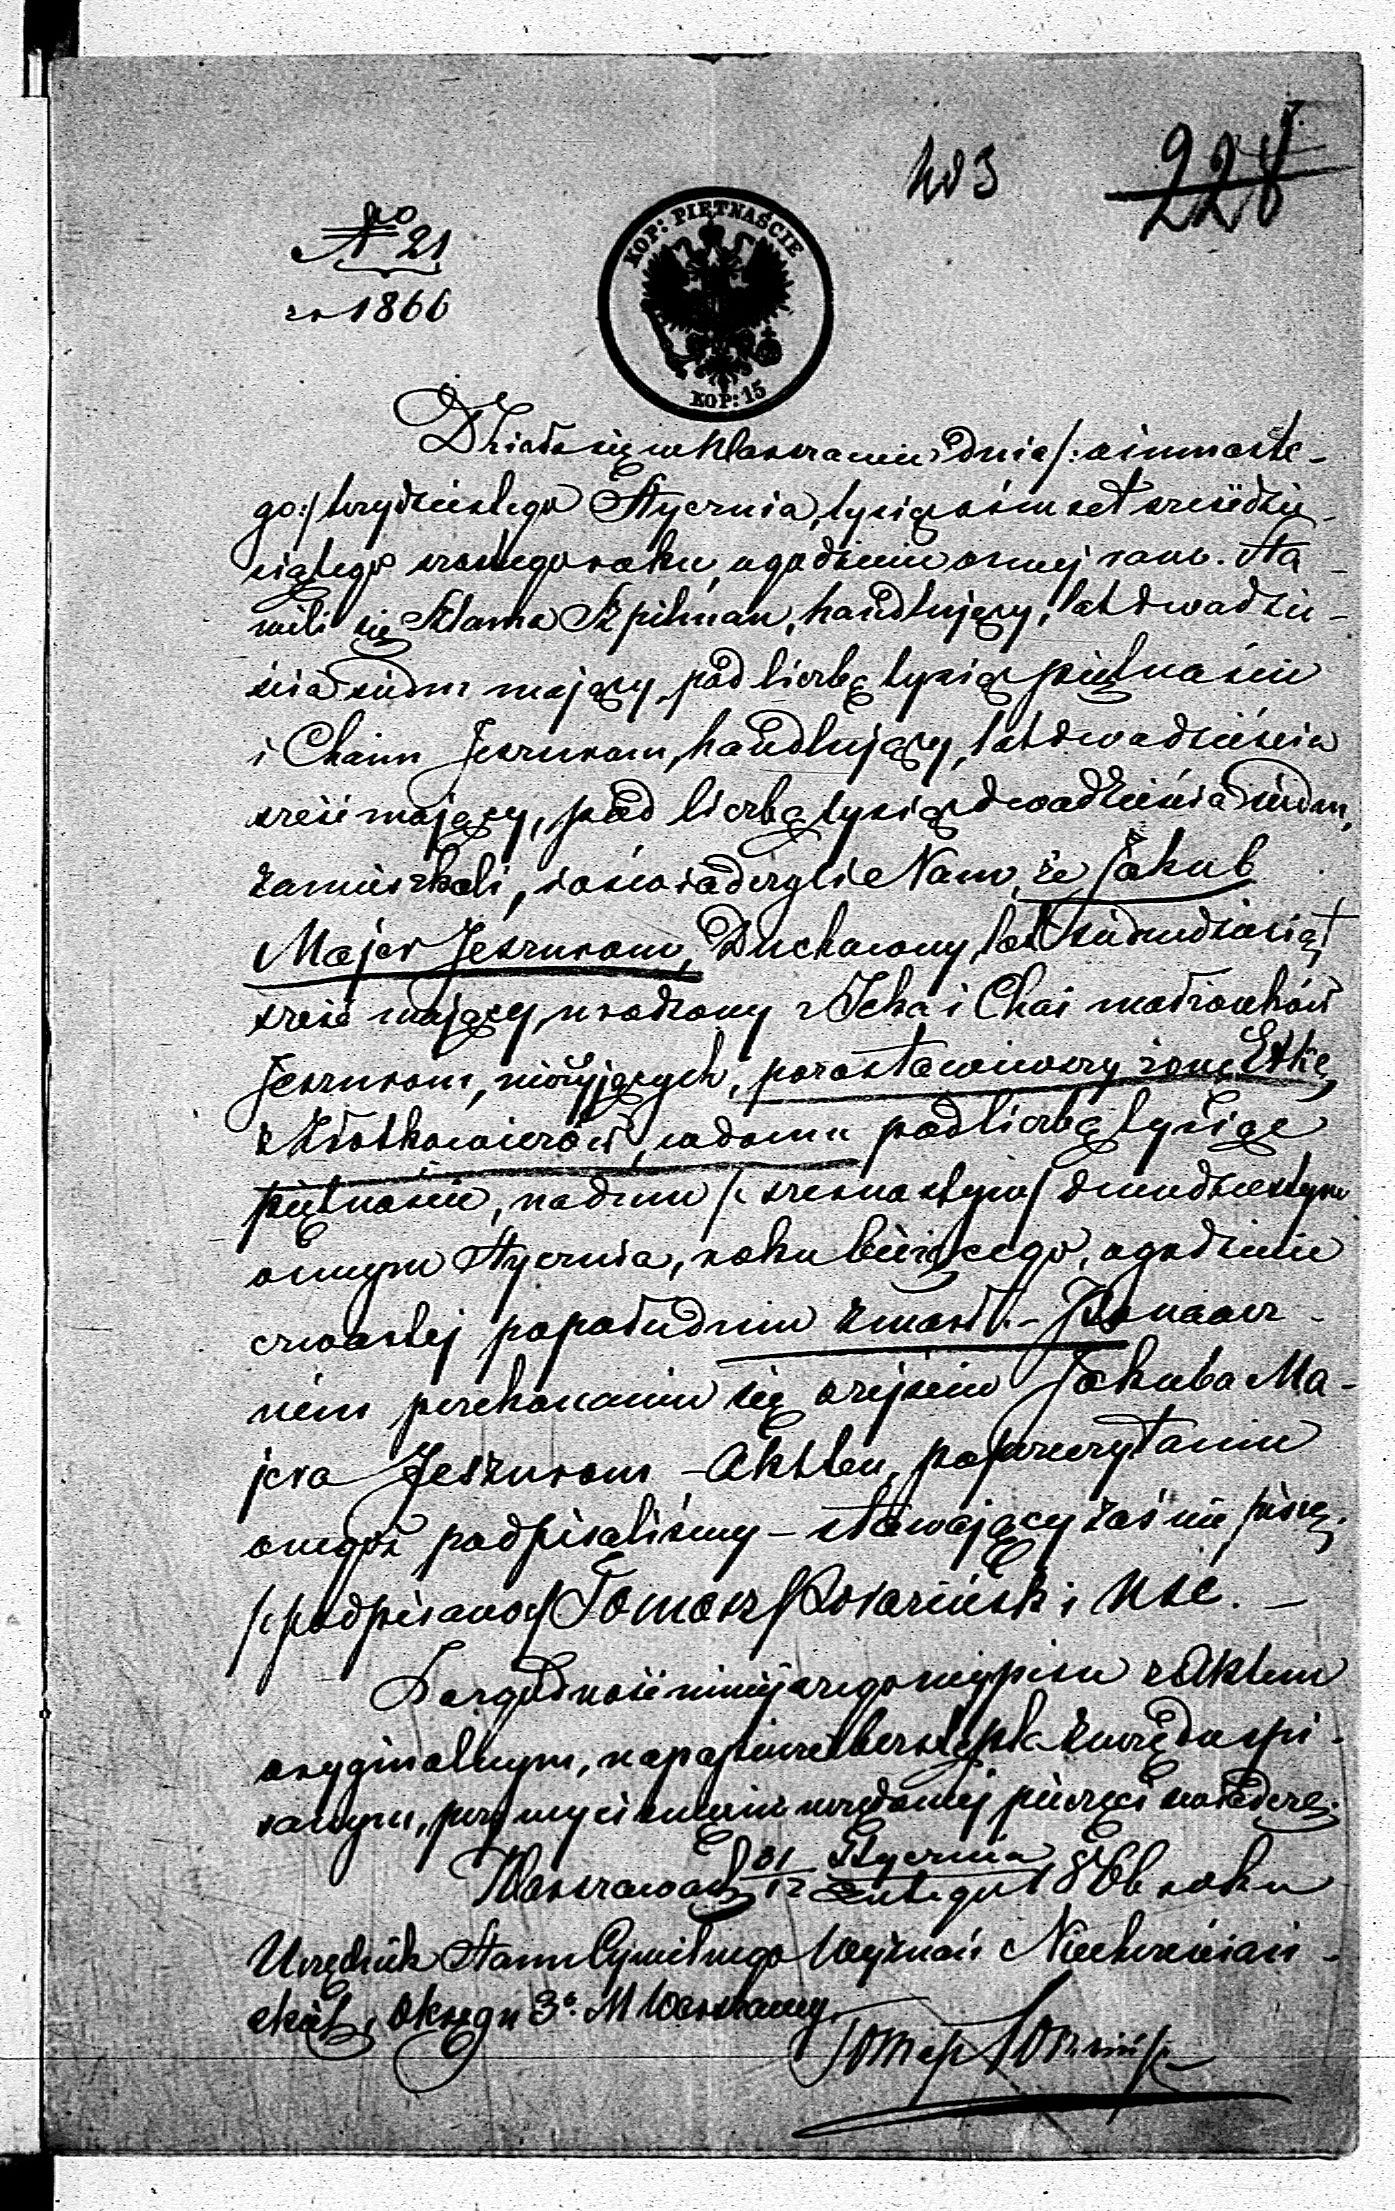 Nd 3
228
No 21
KOP: PIĘTNAŚCIE
ro 1866
KOP: 15
Działo się w Warszawie dnia /: ośmnaste-
go :/ trzydziestego Stycznia, tysiąc óśmset sześćdzie-
siątego szóstego roku, o godzinie ósmej rano. Sta-
wili się Szlama Szpilman, handlujący, lat dwadzie-
ścia siedm mający, pod liczbą tysiąc piętnaście
i Chaim Jeszurom, handlujący, lat dwadzieścia
sześć mający, pod liczbą tysiąc dwadzieścia siedm,
zamieszkali, i oświadczyli Nam, że Jakub
Majer Jeszurom, Duchowny, lat siedmdziesiąt
sześć mający, urodzony z Icka i Chai małżonków
Jeszurom, nieżyjących, pozostawiwszy żonę Etkę
z, w domu pod liczbą tysiąc
piętnaście, na dniu /: szesnastym :/ dwudziestym
ósmym Stycznia, roku bieżącego, o godzinie
czwartej po południu zmarł. – Po naocz-
nem przekonaniu się o zejściu Jakuba Ma-
jera Jeszurom – Akt ten, po przeczytaniu
onegoż podpisaliśmy – stawający zaś nie piszą.
/: podpisano :/ Tomasz USC. –
Za zgodność niniejszego wypisu z Aktem
oryginalnym, na papierze bez stępla z urzędu spi-
sanym, przy wyciśnieniu urzędowej pieczęci zaświadcza
Warszawa d 31 Stycznia
12 Lutego 1866 roku
Urzędnik Stanu Cywilnego Wyznań Niechrześciań-
skich, Okręgu 3o M Warszawy.